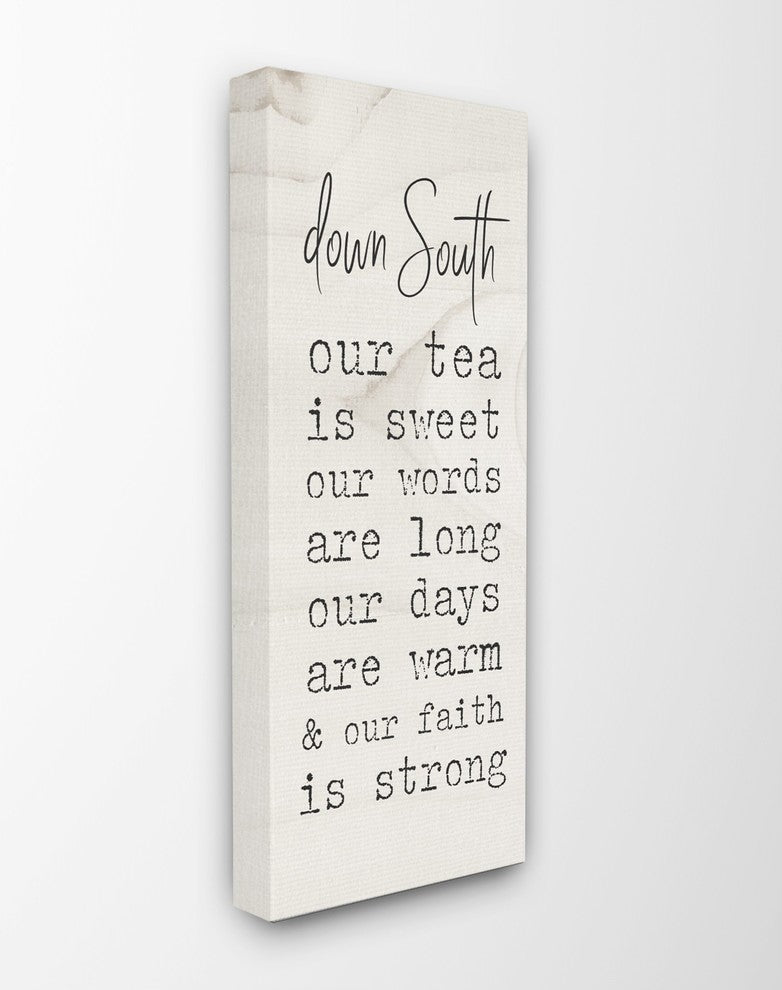 down South
our tea
is sweet
our words
are long
our days
are warm
& our faith
is strong